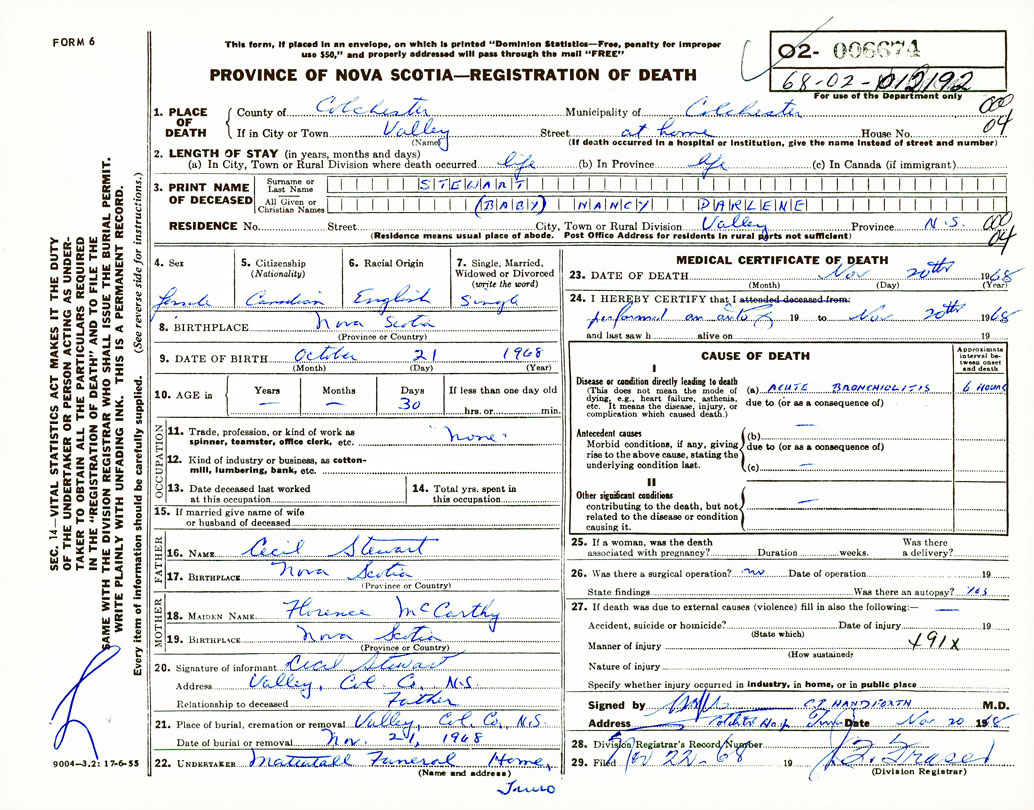 FORM 6
This form, if placed in an envelope, on which is printed "Dominion Statistics—Free, penalty for improper
use $50," and properly addressed will pass through the mail "FREE"
PROVINCE OF NOVA SCOTIA—REGISTRATION OF DEATH
02- 006674
68-02-012192
For use of the Department only
1. PLACE OF DEATH
County of Colchester Municipality of Colchester
If in City or Town Valley Street at home House No.
(Name) (If death occurred in a hospital or institution, give the name instead of street and number)
00
04
2. LENGTH OF STAY (in years, months and days)
(a) In City, Town or Rural Division where death occurred life (b) In Province life (c) In Canada (if immigrant)
3. PRINT NAME OF DECEASED
Surname or Last Name STEWART
All Given or Christian Names (BABY) NANCY DARLENE
RESIDENCE No. Street City, Town or Rural Division Valley Province N.S.
(Residence means usual place of abode. Post Office Address for residents in rural parts not sufficient)
00
04
4. Sex
Female
5. Citizenship
(Nationality)
Canadian
6. Racial Origin
English
7. Single, Married,
Widowed or Divorced
(write the word)
Single
8. BIRTHPLACE Nova Scotia
(Province or Country)
9. DATE OF BIRTH October 21 1968
(Month) (Day) (Year)
10. AGE in
Years Months Days If less than one day old
— — 30 hrs. or min.
OCCUPATION
11. Trade, profession, or kind of work as
spinner, teamster, office clerk, etc. "none"
12. Kind of industry or business, as cotton-
mill, lumbering, bank, etc.
13. Date deceased last worked
at this occupation
14. Total yrs. spent in
this occupation
15. If married give name of wife
or husband of deceased
FATHER
16. NAME Cecil Stewart
17. BIRTHPLACE Nova Scotia
(Province or Country)
MOTHER
18. MAIDEN NAME Florence McCarthy
19. BIRTHPLACE Nova Scotia
(Province or Country)
20. Signature of informant Cecil Stewart
Address Valley, Col. Co., N.S.
Relationship to deceased Father
21. Place of burial, cremation or removal Valley, Col. Co., N.S.
Date of burial or removal Nov. 21, 1968
22. UNDERTAKER Mattatall Funeral Home,
(Name and address)
Truro
MEDICAL CERTIFICATE OF DEATH
23. DATE OF DEATH Nov 20th 1968
(Month) (Day) (Year)
24. I HEREBY CERTIFY that I attended deceased from:
performed an autopsy 19 to Nov 20th 1968
and last saw h alive on 19
CAUSE OF DEATH
Approximate
interval be-
tween onset
and death
I
Disease or condition directly leading to death
(This does not mean the mode of
dying, e.g., heart failure, asthenia,
etc. It means the disease, injury, or
complication which caused death.)
(a) ACUTE BRONCHIOLITIS 6 HOURS
due to (or as a consequence of)
Antecedent causes
Morbid conditions, if any, giving
rise to the above cause, stating the
underlying condition last.
(b) —
due to (or as a consequence of)
(c) —
II
Other significant conditions
contributing to the death, but not
related to the disease or condition
causing it.
—
25. If a woman, was the death
associated with pregnancy? Duration weeks. Was there
a delivery?
26. Was there a surgical operation? no Date of operation 19
State findings Was there an autopsy? YES
27. If death was due to external causes (violence) fill in also the following:— —
Accident, suicide or homicide? Date of injury 19
(State which)
Manner of injury 491X
(How sustained)
Nature of injury
Specify whether injury occurred in industry, in home, or in public place
Signed by C.E. HANDFORTH M.D.
Address Colchester Hosp Truro Date Nov 20 1968
28. Division Registrar's Record Number
29. Filed Nov 22-68 19 Fraser
(Division Registrar)
SEC. 14—VITAL STATISTICS ACT MAKES IT THE DUTY
OF THE UNDERTAKER OR PERSON ACTING AS UNDER-
TAKER TO OBTAIN ALL THE PARTICULARS REQUIRED
IN THE "REGISTRATION OF DEATH" AND TO FILE THE
SAME WITH THE DIVISION REGISTRAR WHO SHALL ISSUE THE BURIAL PERMIT.
WRITE PLAINLY WITH UNFADING INK. THIS IS A PERMANENT RECORD.
Every item of information should be carefully supplied. (See reverse side for instructions.)
9004—3.2: 17-6-55